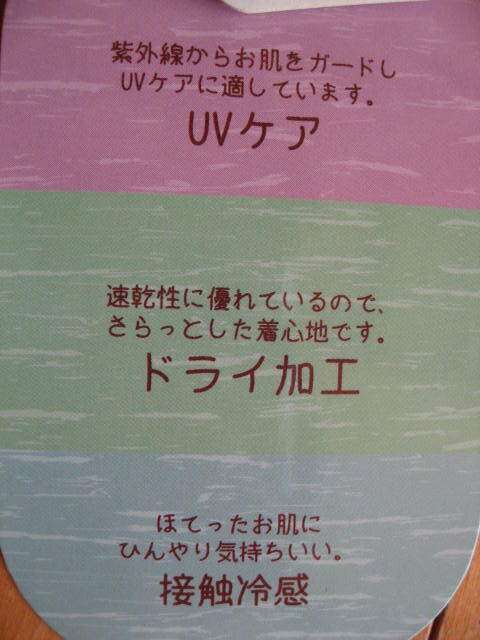 紫外線からお肌をガードし
UVケアに適しています。
UVケア
速乾性に優れているので、
さらっとした着心地です。
ドライ加工
ほてったお肌に
ひんやり気持ちいい。
接触冷感